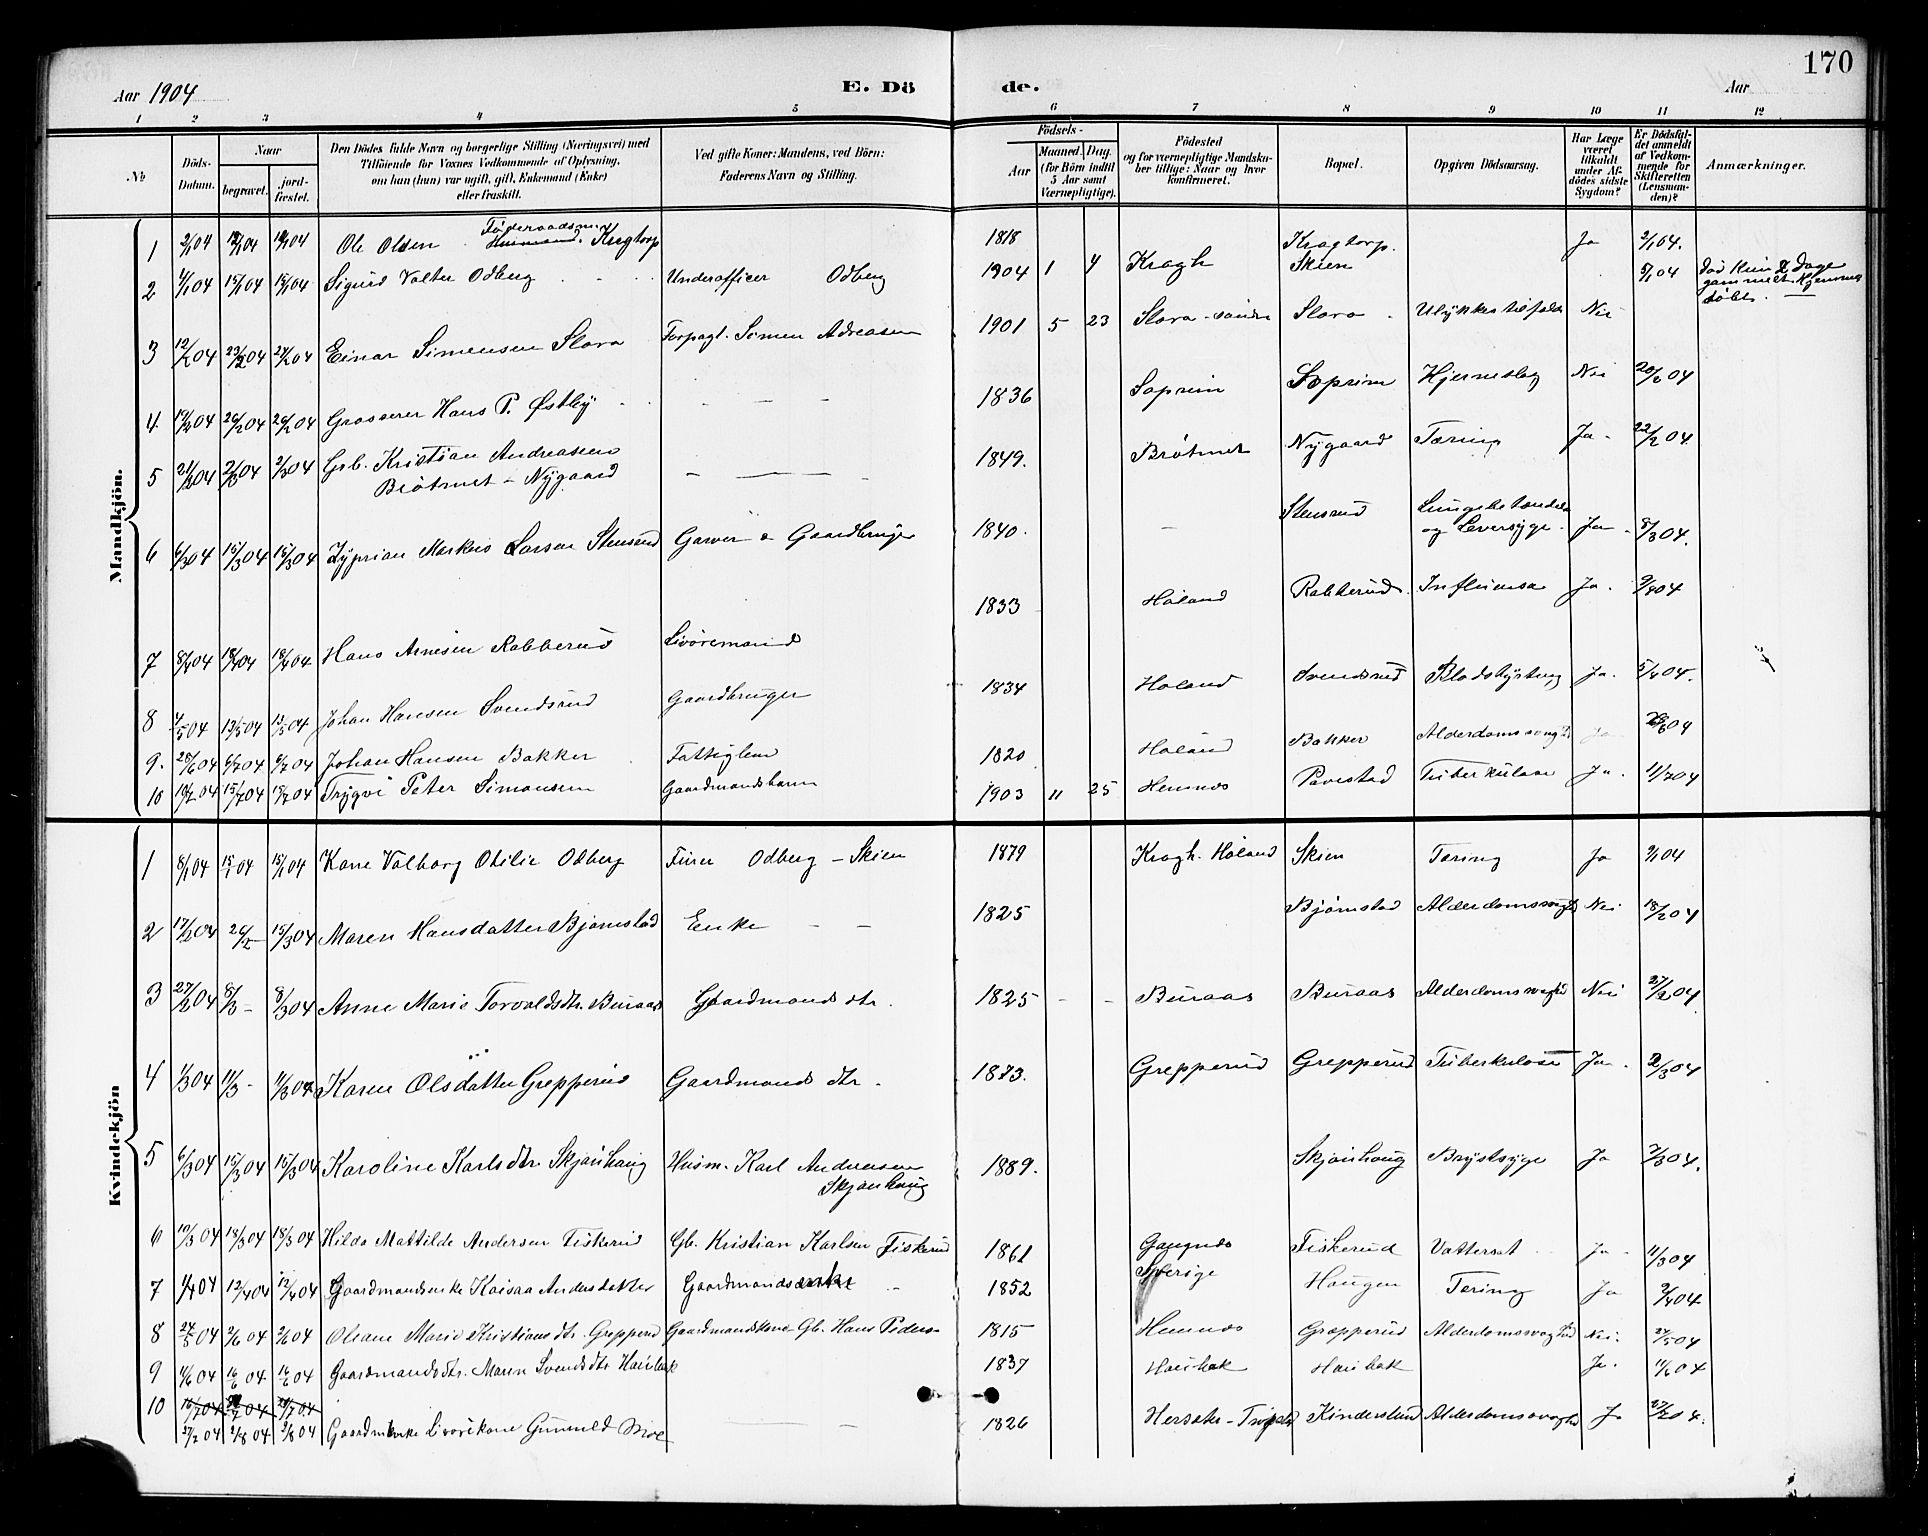 170
Aar 1904
E. Dö de.
Aar
1 2 3 4 5 6 7 8 9 10 11 12
№
Döds-Datum.
Naar
begravet.
jord-fæstet.
Den Dödes fulde Navn og borgerlige Stilling (Næringsvei) med
Tilföiende for Voxnes Vedkommende af Oplysning,
om han (hun) var ugift, gift, Enkemand (Enke)
eller fraskilt.
Ved gifte Koner: Mandens, ved Börn:
Faderens Navn og Stilling.
Födsels-
Aar
Maaned. Dag.
(for Börn indtil
5 Aar samt
Værnepligtige).
Födested
og for værnepligtige Mandska-
ber tillige: Naar og hvor
konfirmeret.
Bopæl.
Opgiven Dödsaarsag.
Har Læge
været
tilkaldt
under Af-
dödes sidste
Sygdom?
Er Dödsfal-
det anmeldt
af Vedkom-
mende for
Skifteretten
(Lensman-
den)?
Anmærkninger.
Mandkjön.
1 2/1 04 19/1 04 19/1 04 Ole Olsen Föderaadsm. Husmand. Kragtorp 1818 Kragtorp. Ja 2/1 04.
2 4/1 04 15/1 04 15/1 04 Sigurd Valter Odberg Underofficer Odberg 1904 1 4 Kragh Skien 5/1 04 Död kun 2 Dage gammelt. Hjemme döbt. —
3 12/2 04 23/2 04 23/2 04 Einar Simensen Slora Forpagt. Simen Adreasen 1901 5 23 Slora - söndre Slora Ulykkestilfælde Nei
4 19/2 04 26/2 04 26/2 04 Grosserer Hans P. Østby — — — 1836 Soprim Soprim Hjerneslag Nei 20/2 04
5 21/2 04 2/3 04 2/3 04 Grb. Kristian Andreasen
Brötmet - Nygaard — — — 1849. Brötmet Nygaard Tæring Ja 22/2 04
6 6/3 04 15/3 04 15/3 04 Zyprian Markus Larsen Stensrud Garver & Gaardbruger 1840. — Stensrud Lungebetændelse
og Leversyge. Ja 8/3 04.
7 8/4 04 18/4 04 18/4 04 Hans Arnesen Rabberud Livöremand 1833 Höland Rabberud Influensa Ja. 9/4 04
8 4/5 04 13/5 04 13/5 04 Johan Hansen Svendsrud Gaardbruger 1834 Höland Svendsrud Blodstyrtning Ja. 5/5 04.
9. 28/6 04 6/7 04 6/7 04 Johan Hansen Bakker Fattiglem 1820 Höland Bakker Alderdomssvaghed Ja 28/6 04
10 10/7 04 15/7 04 15/7 04 Trygve Peter Simonsen Gaardmandsbarn 1903 11 25 Hemnes Pavestad Tuberkulose Ja. 11/7 04
Kvindekjön
1 8/1 04 15/1 04 15/1 04 Kane Valborg Otilie Odberg Furer Odberg - Skien 1879 Kragh. Höland Skien Tæring Ja 9/1 04
2 17/2 04 26/2 — 15/3 04 Maren Hansdatter Bjørnstad Enke — — 1825 Bjørnstad Alderdomssvaghed Nei 18/2 04
3 27/2 04 8/3 — 8/3 04 Anne Marie Torvaldsdtr. Buraas Gaardmands dtr. 1825 — — Buraas Buraas Alderdomssvaghed Nei 27/2 04
4 1/3 04 11/3 — 11/3 04 Karen Olsdatter Grepperud Gaardmands dtr. 1873. Grepperud Grepperud Tuberkulose Ja. 2/3 04
5 6/3 04 15/3 04 15/3 04 Karoline Karlsdtr. Skjønhaug Husm. Karl Andersen
Skjønhaug 1889. Skjønhaug Brystsyge Ja 7/3 04.
6 10/3 04 18/3 04 18/3 04 Hilda Mattilde Andersen Fiskerud Gb. Kristian Karlsen Fiskerud 1861 Gangnes Fiskerud Vattersot Ja 11/3 04
7 1/4 04 12/4 04 12/4 04 Gaardmandsenke Kaisaa Andersdatter Gaardmandsenke 1852 Sverige Haugen Tæring Ja 2/4 04
8 24/5 04 2/6 04 2/6 04 Oleane Marie Kristiansdtr. Grepperud Gaardmandskone Gb. Hans Peders. 1815 Hemnes Grepperud Alderdomssvaghed Nei. 27/5 04
9 11/6 04 16/6 04 16/6 04 Gaardmandsdtr. Maren Svendsdtr Haubak 1837 Haubak Haubak Ja. 11/6 04
10 27/7 04 2/8 04 2/8 04 Gaardm.enke Livörekone Gunnild Moe — — 1826 Hersæter - Kinderstun Alderdomssvaghed Ja 27/7 04.